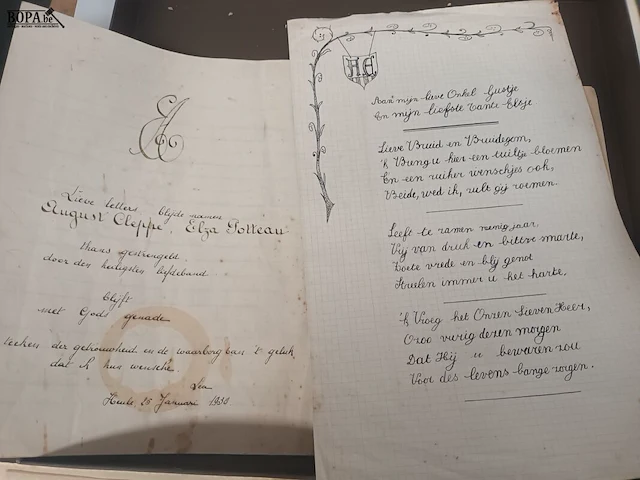 BOPA.be
EA
Lieve letters blijde namen
August Cleppe, Elza Potteau
thans gestrengeld
door den heiligsten liefdeband
blijft
met Gods genade
teeken der getrouwheid en de waarborg van 't geluk,
dat ik hun wensche.
Lea
Heule 25 Januari 1933
HE
Aan mijn lieve Onkel Gustje
En mijn liefste Tante Elsje
Lieve Bruid en Bruidegom,
'k Breng u hier een tuiltje bloemen
En een ruiker wenschjes ook,
Beide, wed ik, zult gij roemen.
Leeft te zamen menig jaar,
Vrij van druk en bittre smarte,
Zoete vrede en blij genot
Streelen immer u het harte.
'k Vroeg het Onzen Lieven Heer,
Ozoo vurig dezen morgen
Dat Hij u bewaren zou
Voor des levens bange zorgen.